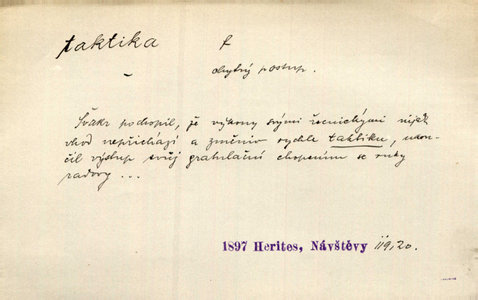 taktika f
chytrý postup.
Švakr pochopil, že výkony svými řečnickými nijak
vhod nepřichází a změniv rychle taktiku, ukon-
čil výstup svůj gratulační chopením se ruky
radovy ...
1897 Herites, Návštěvy II9, 20.